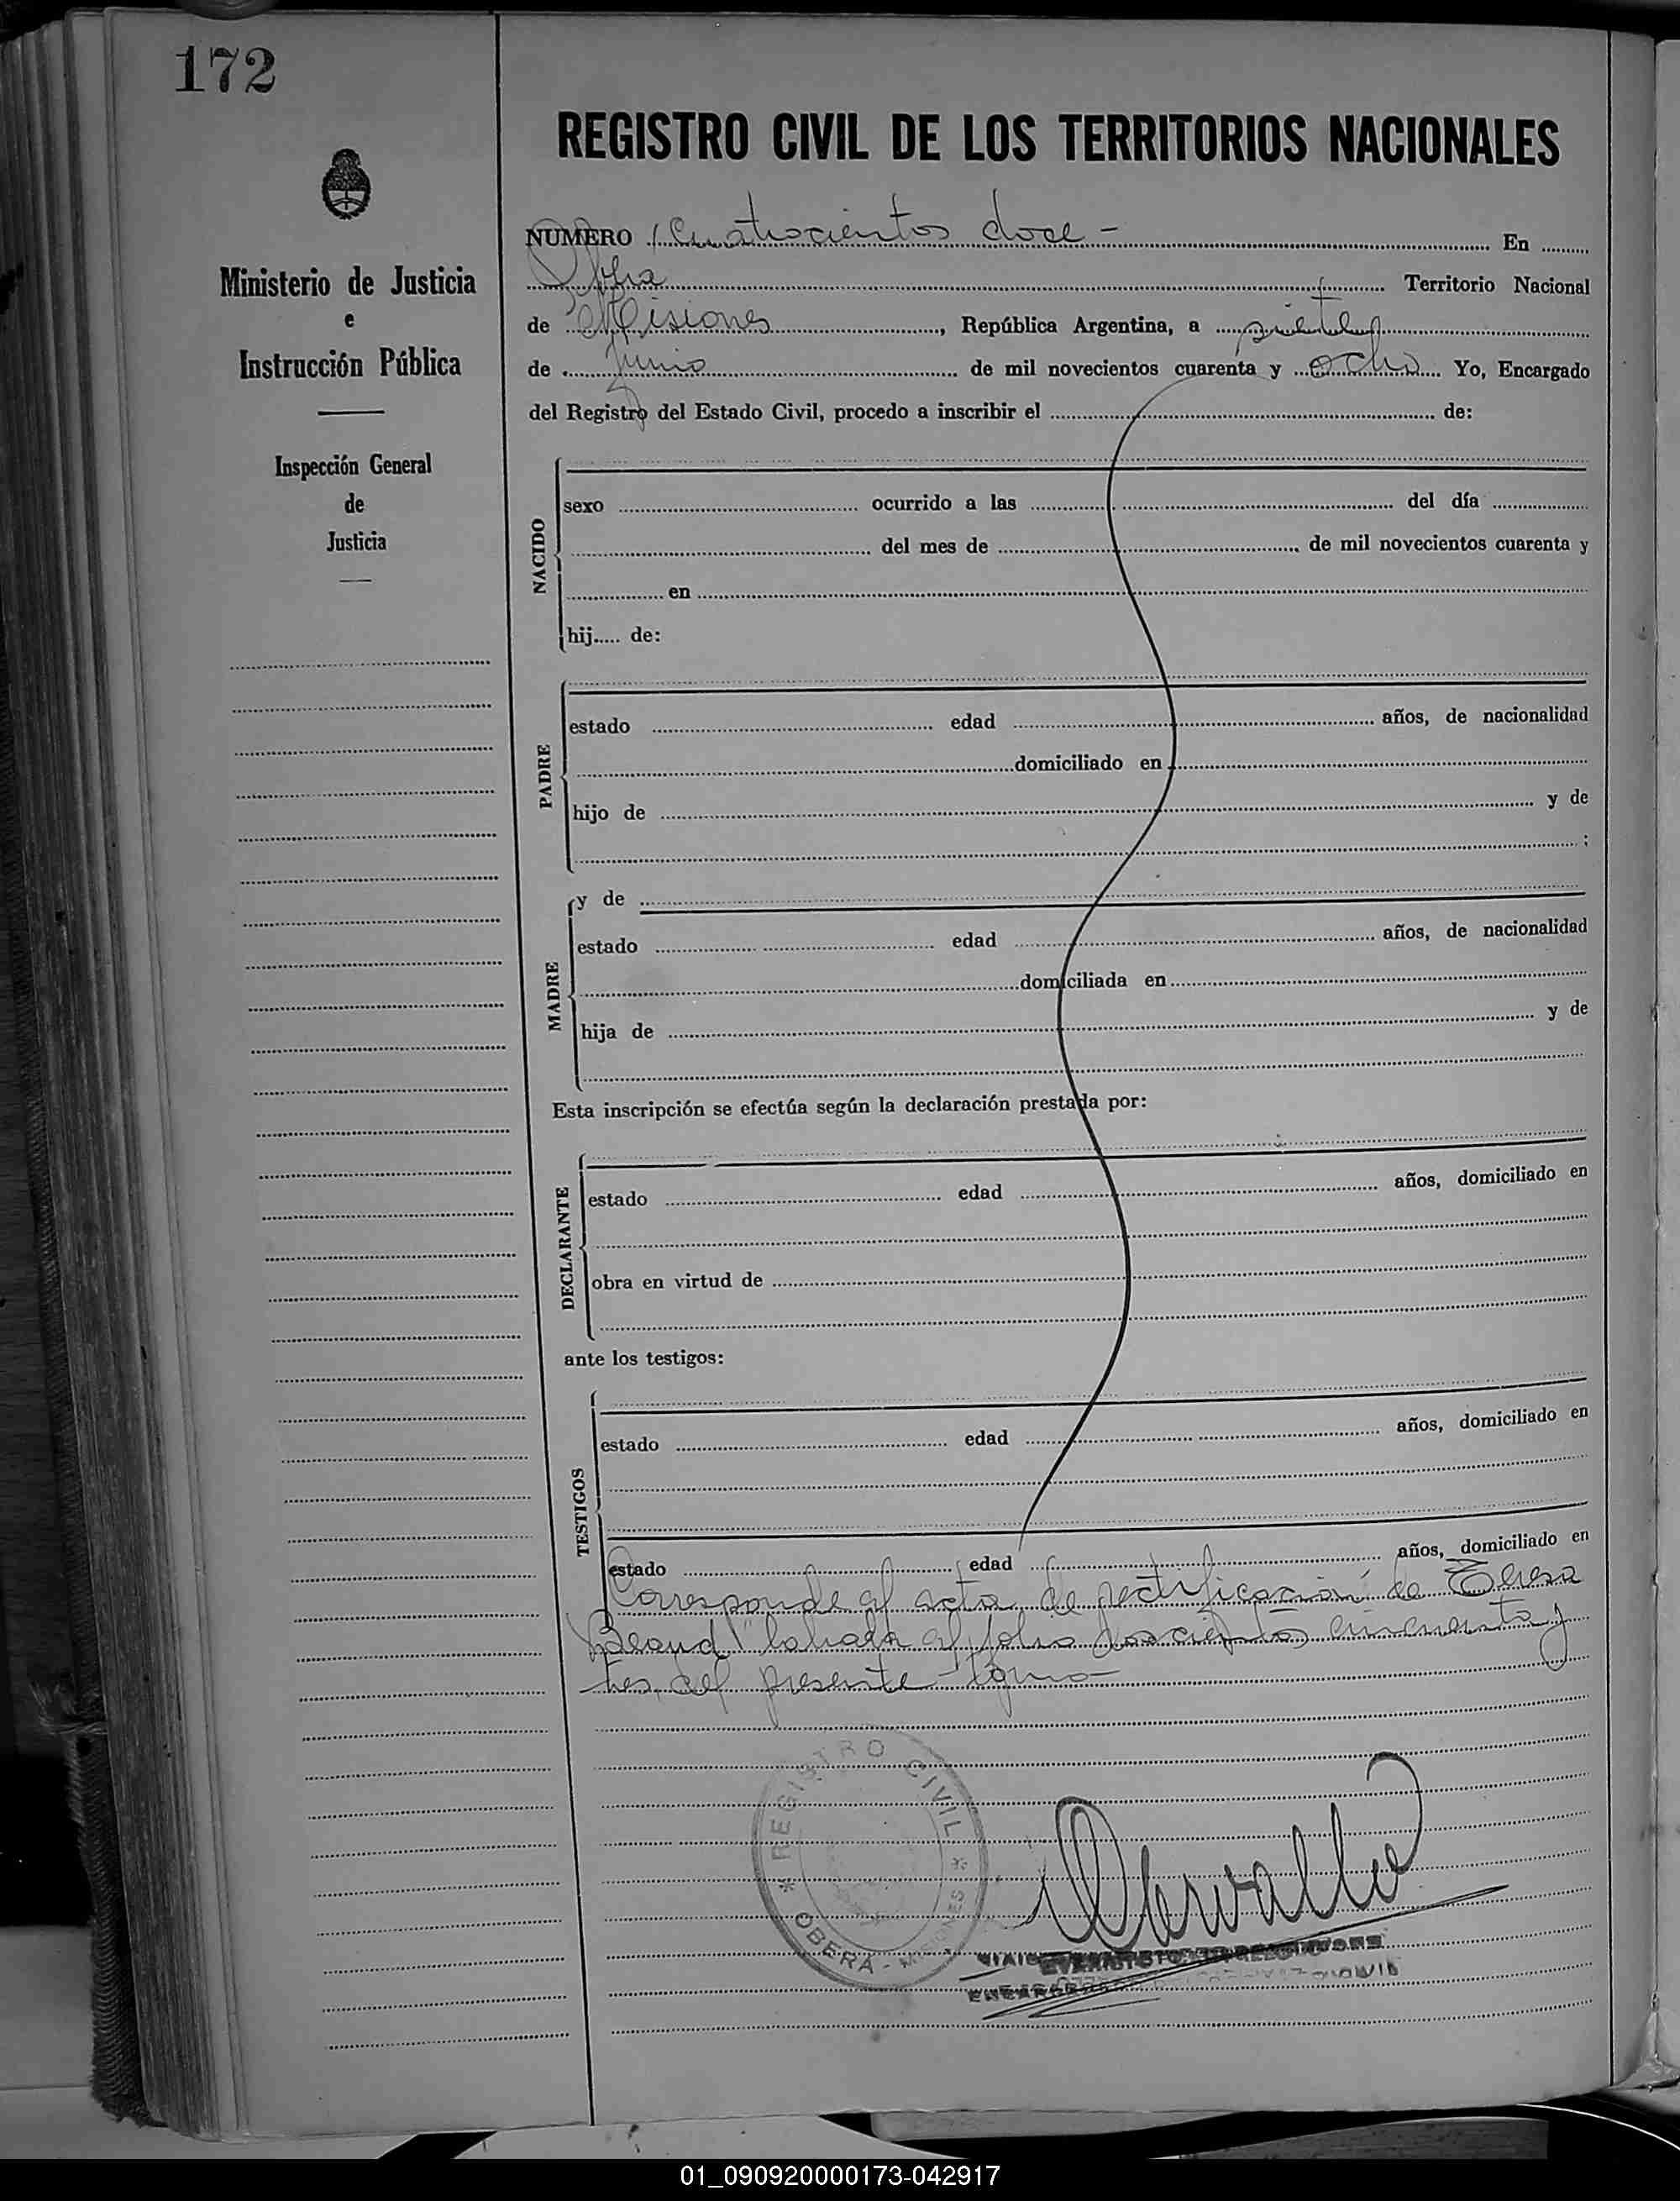 172
REGISTRO CIVIL DE LOS TERRITORIOS NACIONALES
Ministerio de Justicia
e
Instrucción Pública
Inspección General
de
Justicia
NUMERO Cuatrocientos doce - En
Territorio Nacional
de Misiones, República Argentina, a siete
de Junio de mil novecientos cuarenta y ocho Yo, Encargado
del Registro del Estado Civil, procedo a inscribir el de:
NACIDO
sexo ocurrido a las del día
del mes de de mil novecientos cuarenta y
en
hij..... de:
PADRE
estado edad años, de nacionalidad
domiciliado en
hijo de y de
;
MADRE
y de
estado edad años, de nacionalidad
domiciliada en
hija de y de
Esta inscripción se efectúa según la declaración prestada por:
DECLARANTE
estado edad años, domiciliado en
obra en virtud de
ante los testigos:
TESTIGOS
estado edad años, domiciliado en
estado edad años, domiciliado en
Corresponde al acta de rectificación de Teresa
labrada al folio doscientos cincuenta y
tres, del presente tomo -
REGISTRO CIVIL
OBERÁ - MISIONES
01_090920000173-042917